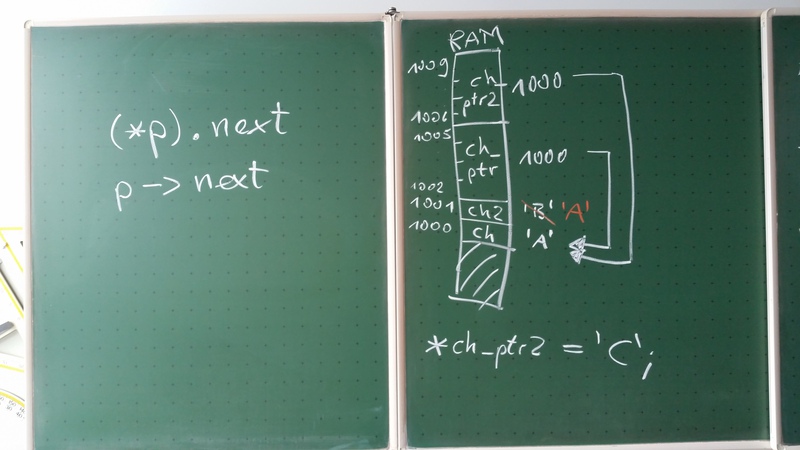 (*p).next
p -> next
RAM
1009
ch
ptr2
1000
1006
1005
ch_
ptr
1000
1002
1001 ch2 'B' 'A'
1000 ch 'A'
*ch_ptr2 = 'C';